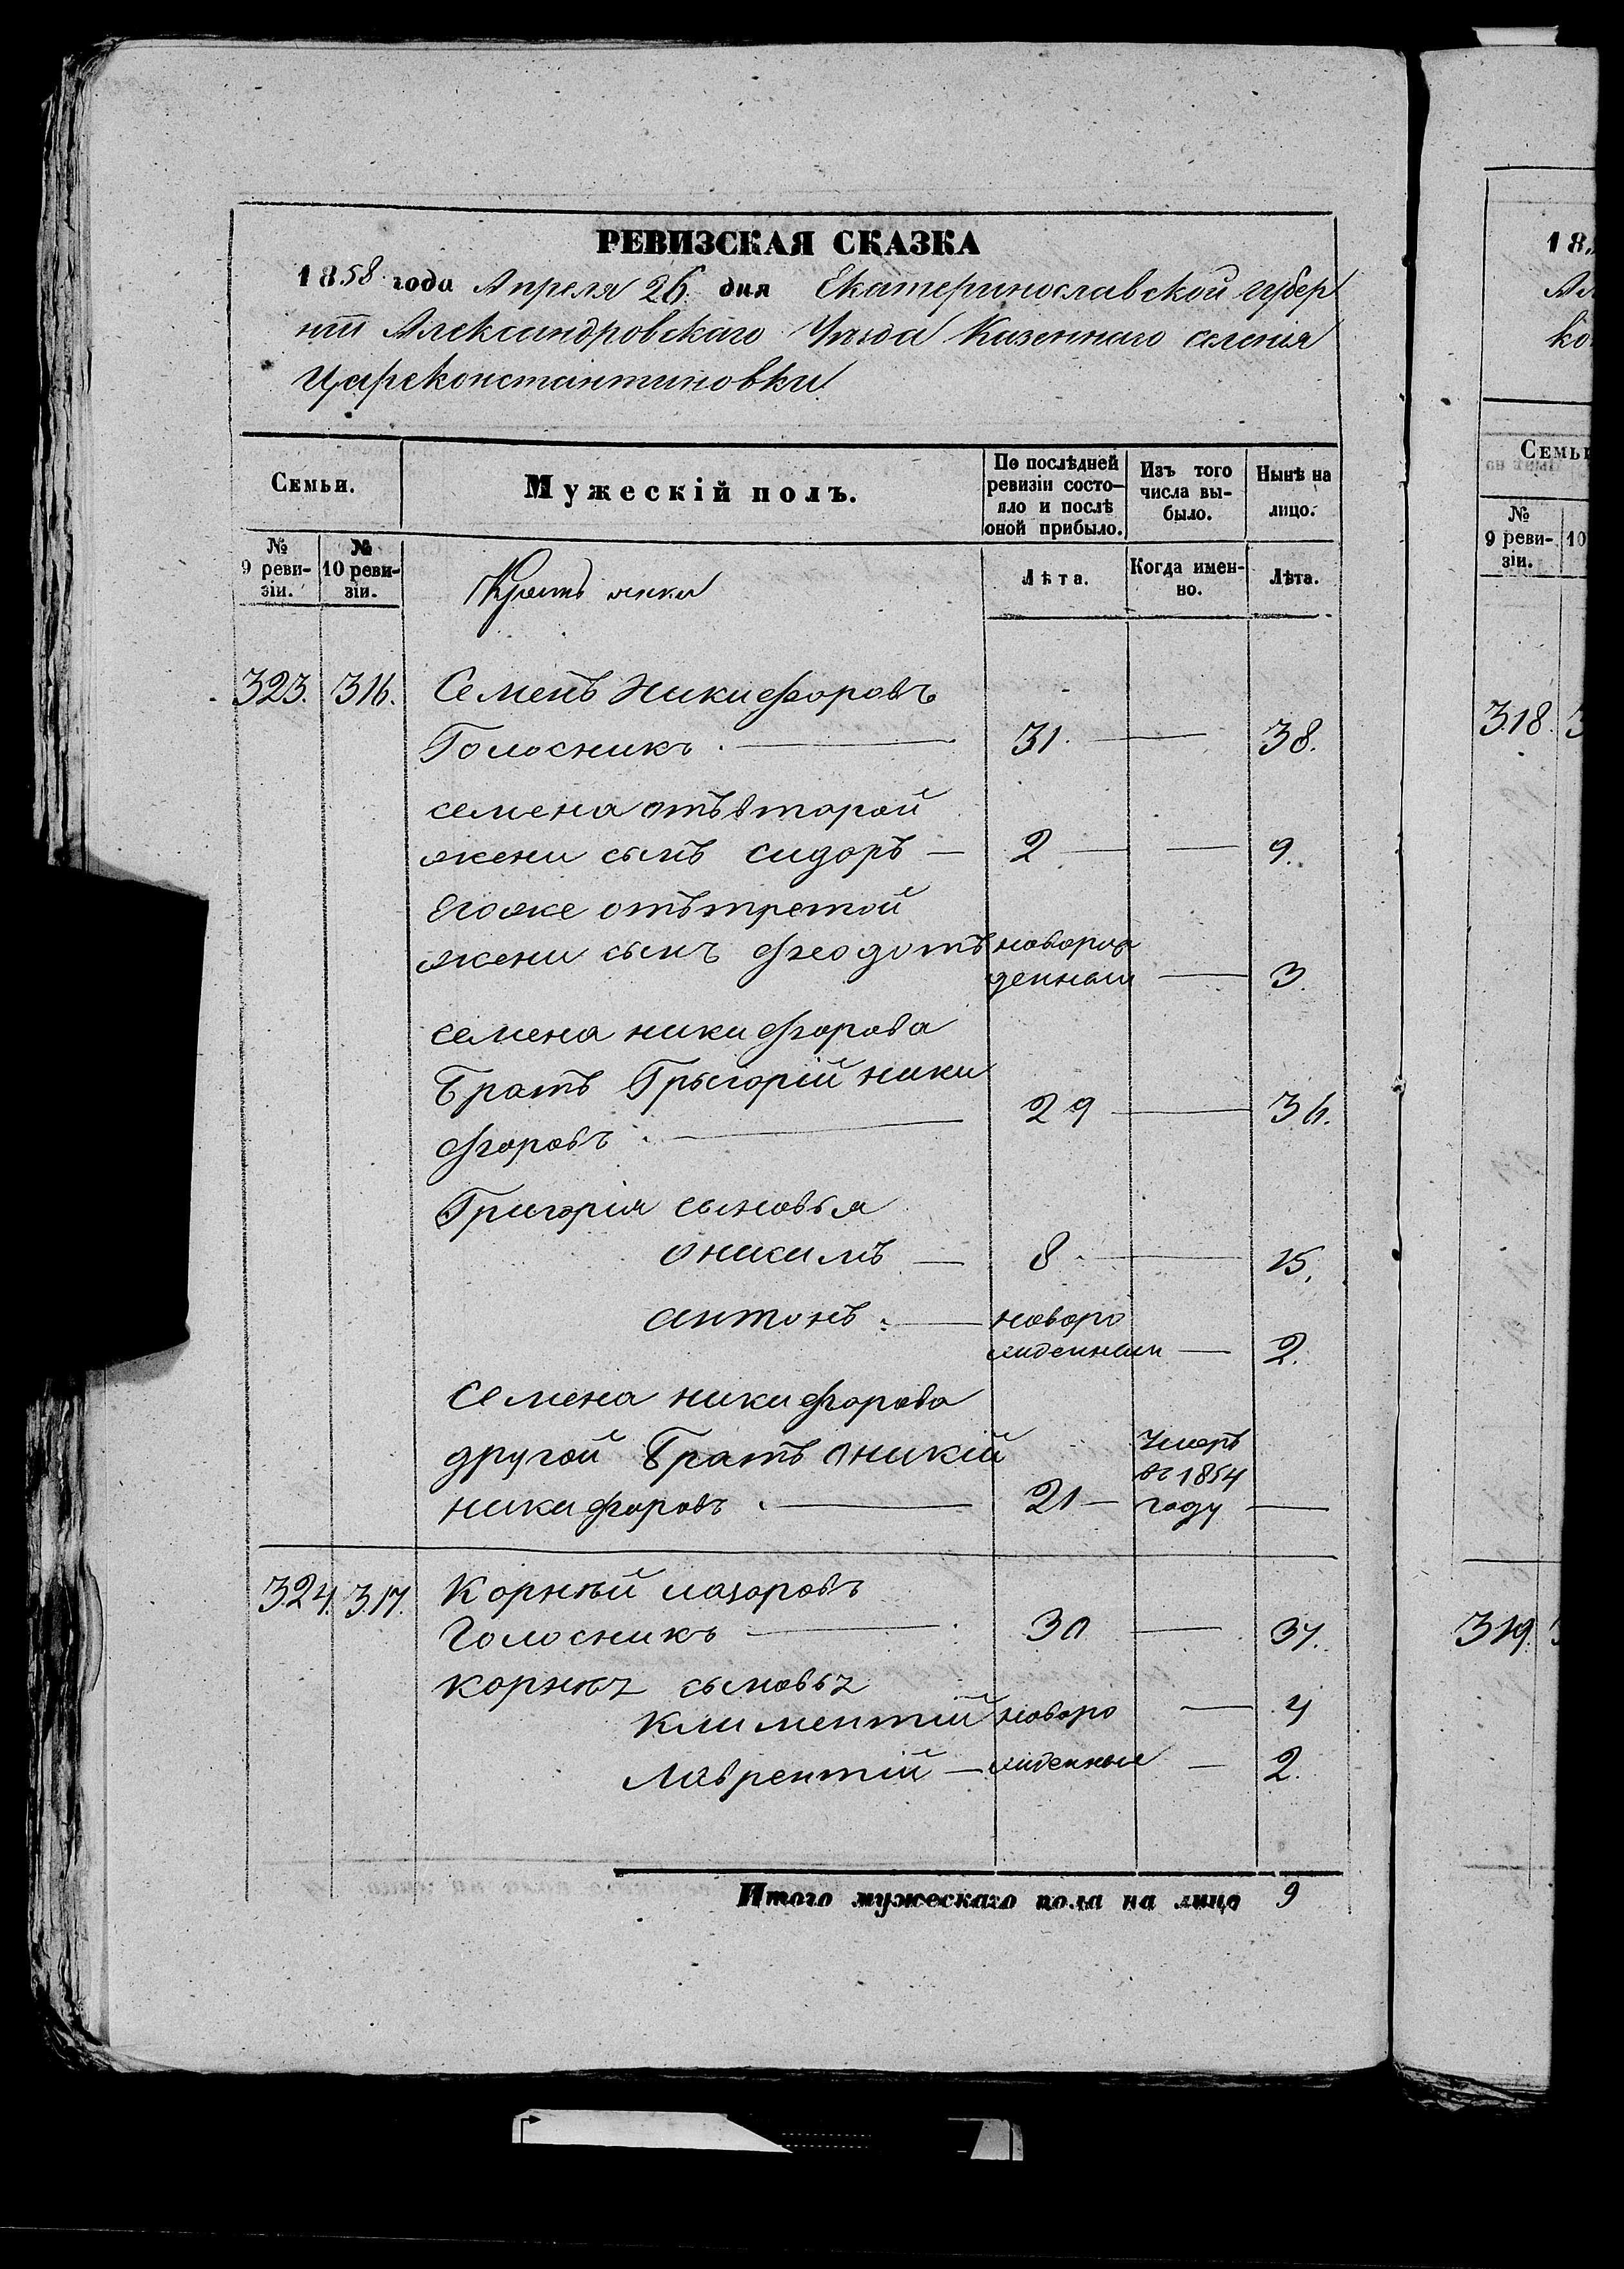 РЕВИЗСКАЯ СКАЗКА
1858 года Апреля 26 дня Екатеринославской губер
нiи Александровскаго Уѣзда Казеннаго селенiя
Цареконстантиновки
Семьи.
Мужескiй полъ.
По послѣдней ревизiи состо-яло и послѣ оной прибыло.
Изъ того числа вы-было.
Нынѣ на лицо.
№ 9 реви-зiи.
№ 10 реви-зiи.
Лѣта.
Когда имен-но.
Лѣта.
323. 316. Семенъ Никифоровъ
Голосникъ 31 — 38.
семена отъ второй
жени сынъ сидоръ — 2 — 9.
Егоже отъ третой
жени сынъ Феодотъ новорож
денный — 3.
семена никифорова
Братъ Грыгорiй ники
форовъ 29 — 36.
Григорiя сыновья
оникимъ — 8 — 15.
антонъ — новоро
жденный — 2.
Семена никифорова
другой Братъ оникiй Умеръ
въ 1854
никифоровъ — 21 — году —
324. 317. Корнѣй лазоровъ
Голосникъ — 30 — 37.
корнея сыновья
Климентiй новоро — 4
Лаврентiй — жденные — 2.
Итого мужескаго пола на лицо 9
18
Ал
ко
Семьи
№ 9 реви-зiи.
10
318.
319.